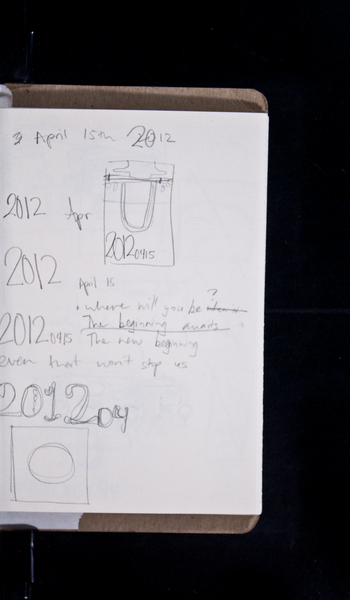 April 15th 2012
2012 Apr
2012 04/15
2012 April 15
• where will you be ?
The beginning awaits
2012 04/15 The new beginning
even that won't stop us
2012 04